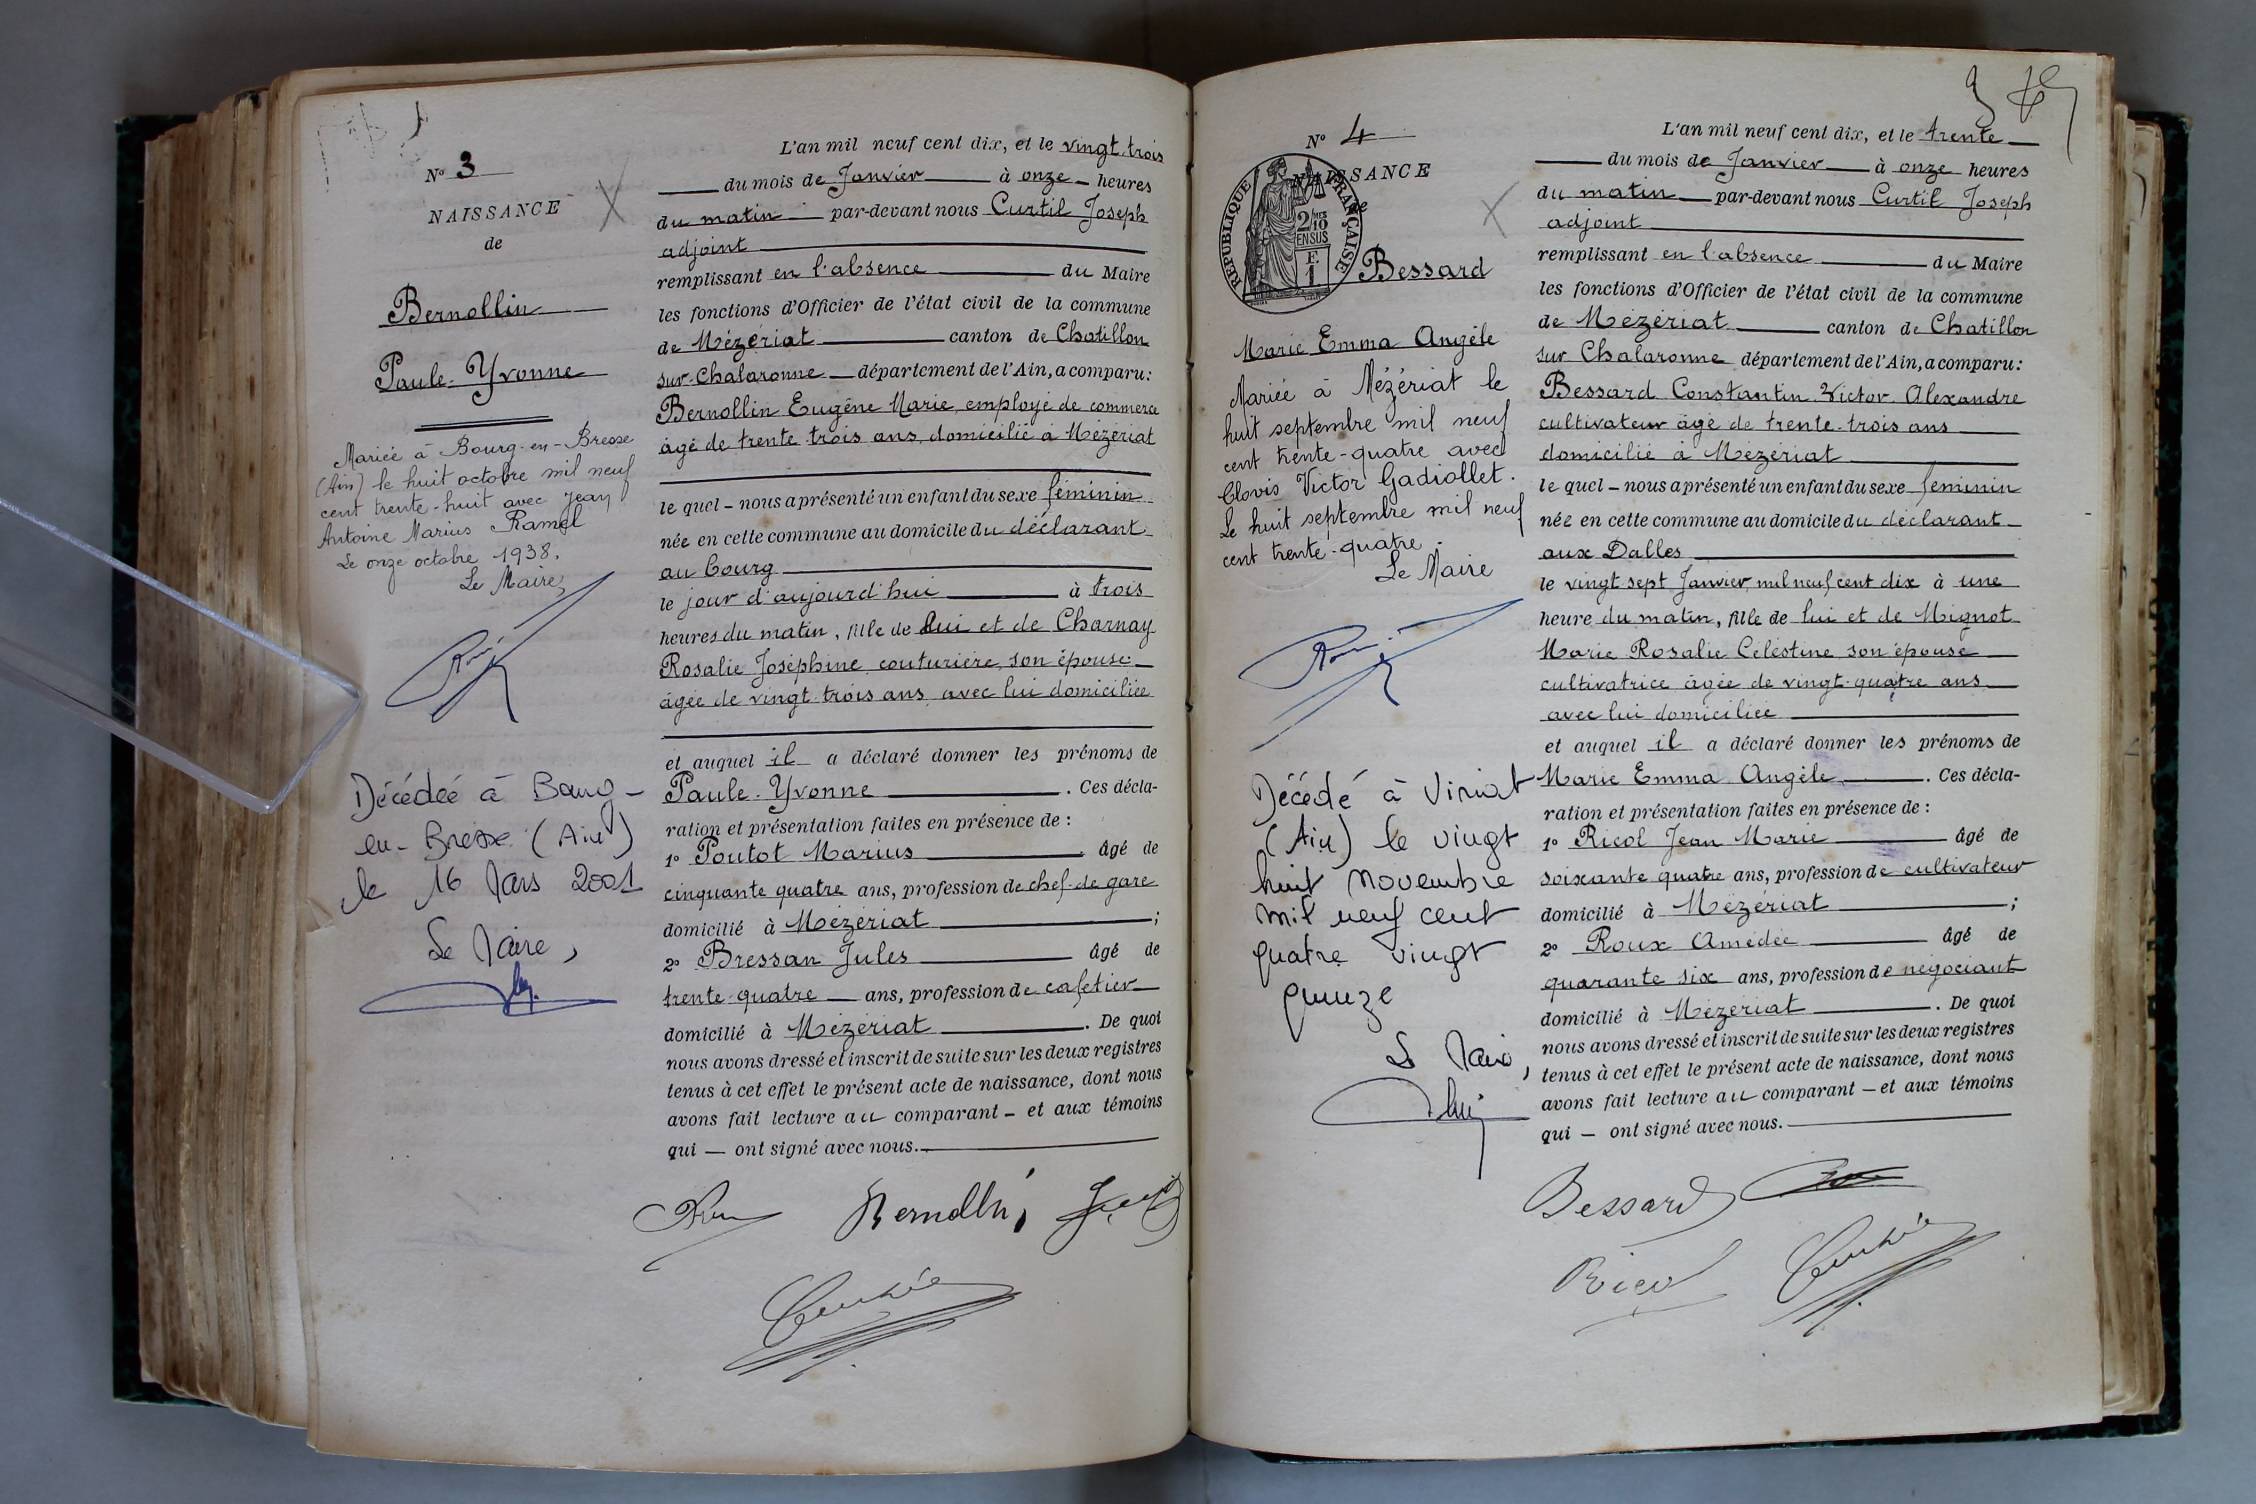 Nº 3
NAISSANCE
de
Bernollin
Paule-Yvonne
Mariée à Bourg-en-Bresse
(Ain) le huit octobre mil neuf
cent trente-huit avec Jean
Antoine Marius Ramel
Le onze octobre 1938.
Le Maire,
Décédée à Bourg-
en-Bresse (Ain)
le 16 Mars 2001
Le Maire,
L'an mil neuf cent dix, et le vingt trois
du mois de Janvier à onze heures
du matin par-devant nous Curtil Joseph
adjoint
remplissant en l'absence du Maire
les fonctions d'Officier de l'état civil de la commune
de Mézériat canton de Chatillon
sur-Chalaronne département de l'Ain, a comparu:
Bernollin Eugène Marie, employé de commerce
âgé de trente-trois ans, domicilié à Mézériat
le quel – nous a présenté un enfant du sexe féminin
née en cette commune au domicile du déclarant
au bourg
le jour d'aujourd'hui à trois
heures du matin, fille de lui et de Charnay
Rosalie Joséphine couturière, son épouse
âgée de vingt trois ans avec lui domiciliée
et auquel il a déclaré donner les prénoms de
Paule-Yvonne . Ces décla-
ration et présentation faites en présence de :
1º Poutot Marius âgé de
cinquante quatre ans, profession de chef-de gare
domicilié à Mézériat ;
2º Bressan Jules âgé de
trente-quatre ans, profession de cafetier
domicilié à Mézériat . De quoi
nous avons dressé et inscrit de suite sur les deux registres
tenus à cet effet le présent acte de naissance, dont nous
avons fait lecture au comparant – et aux témoins
qui — ont signé avec nous.
Bernollin
Nº 4
NAISSANCE
RÉPUBLIQUE FRANÇAISE
2/10
EN SUS
F.
1
Bessard
Marie Emma Angèle
Mariée à Mézériat le
huit septembre mil neuf
cent trente-quatre avec
Clovis Victor Gadiollet.
Le huit septembre mil neuf
cent trente-quatre.
Le Maire
Décédé à Viriat
(Ain) le vingt
huit Novembre
mil neuf cent
quatre vingt
quinze
Le Maire,
L'an mil neuf cent dix, et le trente
du mois de Janvier à onze heures
du matin par-devant nous Curtil Joseph
adjoint
remplissant en l'absence du Maire
les fonctions d'Officier de l'état civil de la commune
de Mézériat canton de Chatillon
sur Chalaronne département de l'Ain, a comparu:
Bessard Constantin Victor Alexandre
cultivateur âgé de trente-trois ans
domicilié à Mézériat
le quel – nous a présenté un enfant du sexe féminin
née en cette commune au domicile du déclarant
aux Dalles
le vingt sept Janvier, mil neuf cent dix à une
heure du matin, fille de lui et de Mignot
Marie Rosalie Célestine, son épouse
cultivatrice âgée de vingt-quatre ans
avec lui domiciliée
et auquel il a déclaré donner les prénoms de
Marie Emma Angèle . Ces décla-
ration et présentation faites en présence de :
1º Ricol Jean Marie âgé de
soixante quatre ans, profession de cultivateur
domicilié à Mézériat ;
2º Roux Amédée âgé de
quarante six ans, profession de négociant
domicilié à Mézériat . De quoi
nous avons dressé et inscrit de suite sur les deux registres
tenus à cet effet le présent acte de naissance, dont nous
avons fait lecture au comparant – et aux témoins
qui — ont signé avec nous.
Bessard
Ricol